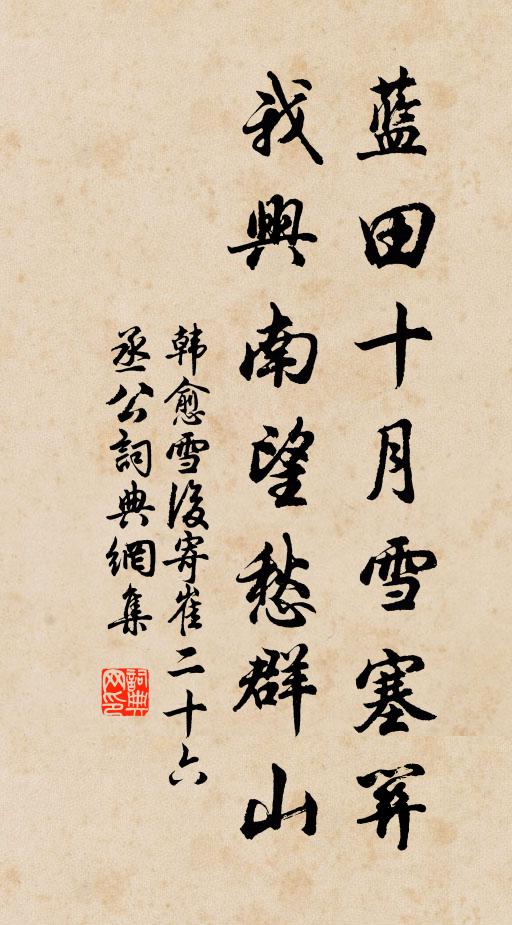 藍田十月雪塞關
我興南望愁群山
韩愈雪後寄崔二十六
丞公詞典網集
詞典
网印